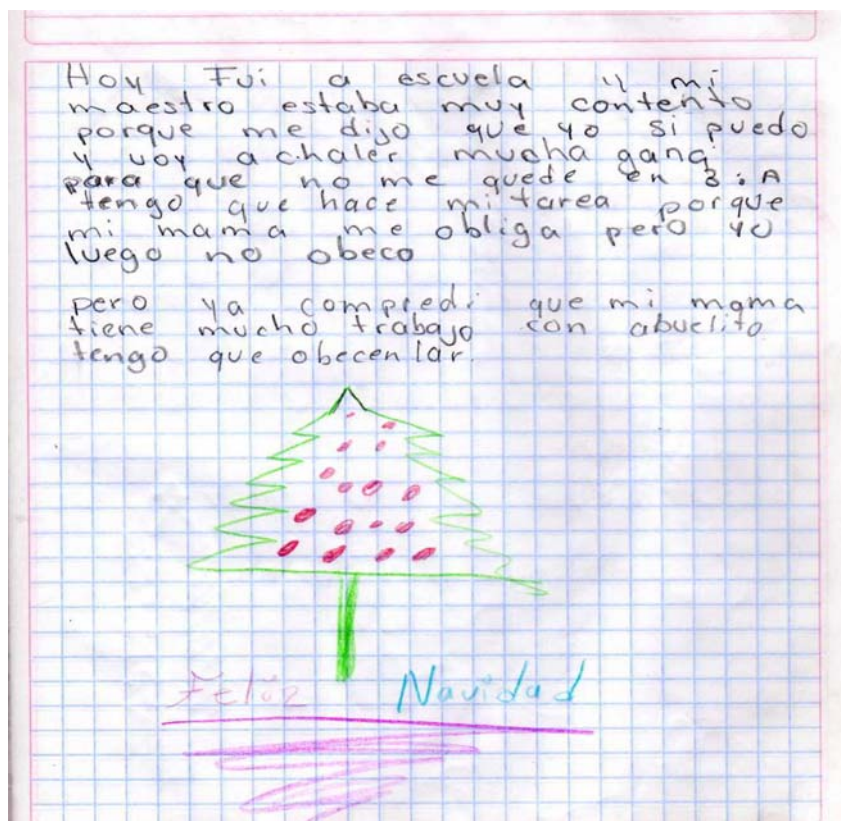 Hoy Fui a escuela y mi
maestro estaba muy contento
porque me dijo que yo si puedo
y voy a chaler mucha gana
para que no me quede en 3:A
tengo que hace mi tarea porque
mi mama me obliga pero yo
luego no obeco
pero ya compredi que mi mama
tiene mucho trabajo con abuelito
tengo que obecenlar.
Feliz Navidad